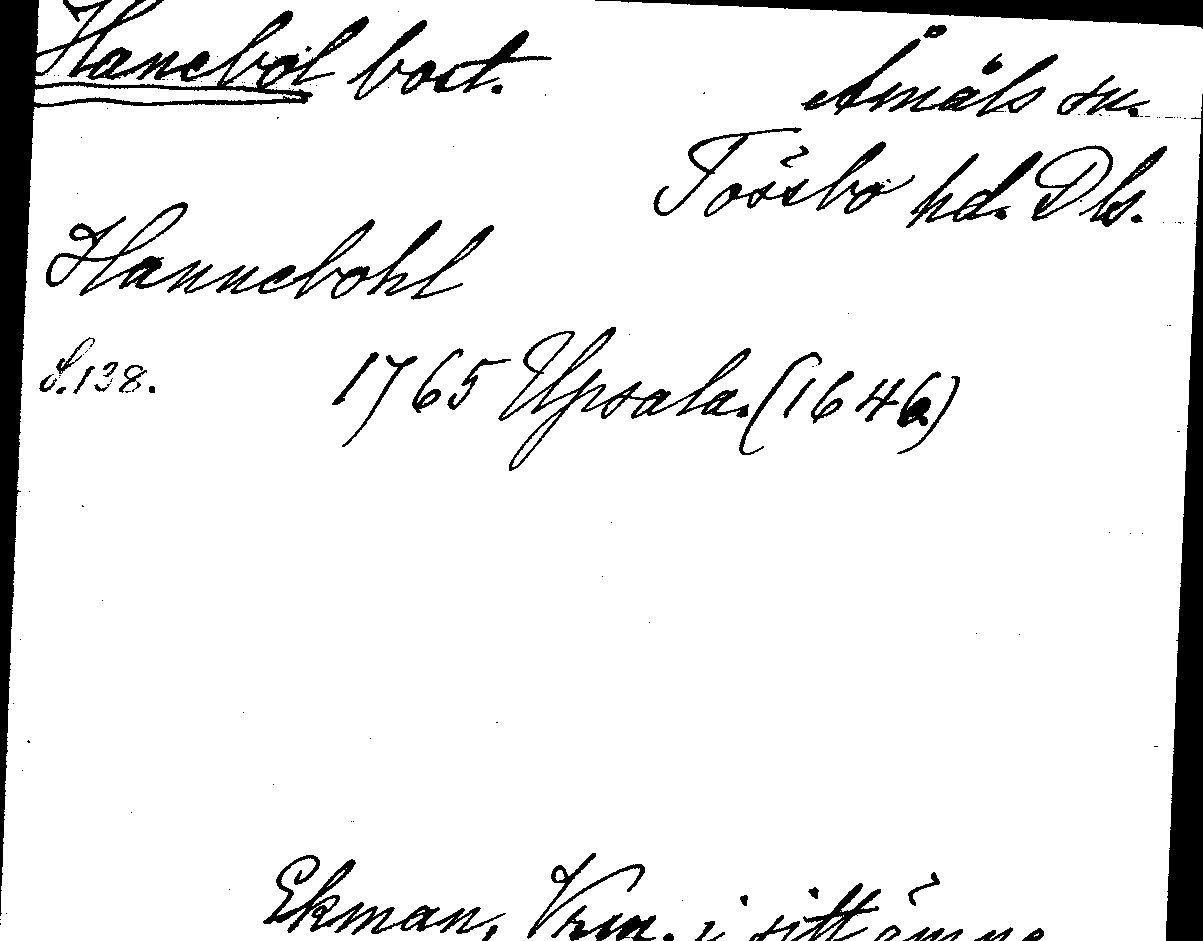 Hanebol bost.
Åmåls sn.
Tössbo hd. Dls.
Hannebohl
S. 138. 1765 Upsala. (1646)
Ekman, Vrm. i sitt ämne